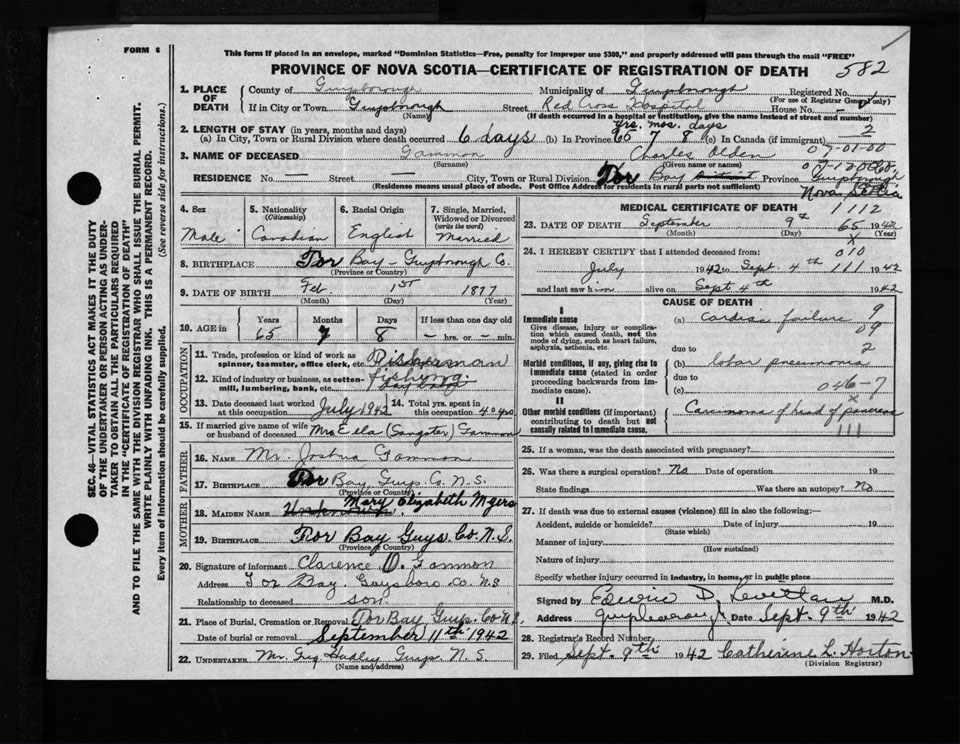 FORM 6
This form if placed in an envelope, marked "Dominion Statistics—Free, penalty for improper use $300," and properly addressed will pass through the mail "FREE"
PROVINCE OF NOVA SCOTIA—CERTIFICATE OF REGISTRATION OF DEATH 582
1. PLACE OF DEATH County of Guysborough Municipality of Guysborough Registered No.
(For use of Registrar General only)
If in City or Town Guysborough Street Red Cross Hospital House No.
(Name) (If death occurred in a hospital or institution, give the name instead of street and number)
2. LENGTH OF STAY (in years, months and days) yrs. mos. days
(a) In City, Town or Rural Division where death occurred 6 days (b) In Province 65 7 8 (c) In Canada (if immigrant) 2
07-01-00
3. NAME OF DECEASED Gammon Charles Olden
(Surname) (Given name or names)
RESIDENCE No. — Street — City, Town or Rural Division Tor Bay District Province Guysborough Co. Nova Scotia
(Residence means usual place of abode. Post Office Address for residents in rural parts not sufficient)
4. Sex Male
5. Nationality (Citizenship) Canadian
6. Racial Origin English
7. Single, Married, Widowed or Divorced (write the word) Married
8. BIRTHPLACE Tor Bay - Guysborough Co.
(Province or Country)
9. DATE OF BIRTH Feb. 1st 1877
(Month) (Day) (Year)
10. AGE in Years Months Days If less than one day old
65 7 8 - hrs. or - min.
OCCUPATION
11. Trade, profession or kind of work as spinner, teamster, office clerk, etc. Fisherman
12. Kind of industry or business, as cotton-mill, lumbering, bank, etc. Fishing
13. Date deceased last worked at this occupation July 1942 14. Total yrs. spent in this occupation 40 yrs
15. If married give name of wife or husband of deceased Mrs Ella (Sangster) Gammon
FATHER
16. NAME Mr. Joshua Gammon
17. BIRTHPLACE Tor Bay, Guys. Co. N.S.
(Province or Country)
MOTHER
18. MAIDEN NAME Mary Elizabeth Myers
19. BIRTHPLACE Tor Bay Guys. Co. N.S.
(Province or Country)
20. Signature of informant Clarence O. Gammon
Address Tor Bay. Guysboro Co. N.S
Relationship to deceased son.
21. Place of Burial, Cremation or Removal Tor Bay Guys. Co N.S.
Date of burial or removal September 11th 1942
22. UNDERTAKER Mr. Hadley Guys. N.S
(Name and address)
MEDICAL CERTIFICATE OF DEATH 1112
23. DATE OF DEATH September 9th 65 1942
(Month) (Day) (Year)
X
010
24. I HEREBY CERTIFY that I attended deceased from:
July 1942 to Sept. 4th 111 1942
and last saw him alive on Sept 4th 1942
CAUSE OF DEATH
I
Immediate cause
Give disease, injury or complication which caused death, not the mode of dying, such as heart failure, asphyxia, asthenia, etc.
(a) Cardiac failure 9
09
due to 2
Morbid conditions, if any, giving rise to immediate cause (stated in order proceeding backwards from immediate cause).
(b) lobar pneumonia
due to
(c) 046-7
X
II
Other morbid conditions (if important) contributing to death but not causally related to immediate cause.
Carcinoma of head of pancreas
111
25. If a woman, was the death associated with pregnancy?
26. Was there a surgical operation? No Date of operation 19
State findings Was there an autopsy? No
27. If death was due to external causes (violence) fill in also the following:—
Accident, suicide or homicide? Date of injury 19
(State which)
Manner of injury
(How sustained)
Nature of injury
Specify whether injury occurred in industry, in home, or in public place
Signed by D M.D.
Address Date Sept. 9th 1942
28. Registrar's Record Number
29. Filed Sept. 9th 1942 Catherine L. Horton
(Division Registrar)
SEC. 46—VITAL STATISTICS ACT MAKES IT THE DUTY OF THE UNDERTAKER OR PERSON ACTING AS UNDERTAKER TO OBTAIN ALL THE PARTICULARS REQUIRED IN THE "CERTIFICATE OF REGISTRATION OF DEATH"
AND TO FILE THE SAME WITH THE DIVISION REGISTRAR WHO SHALL ISSUE THE BURIAL PERMIT.
WRITE PLAINLY WITH UNFADING INK. THIS IS A PERMANENT RECORD.
Every item of information should be carefully supplied. (See reverse side for instructions.)